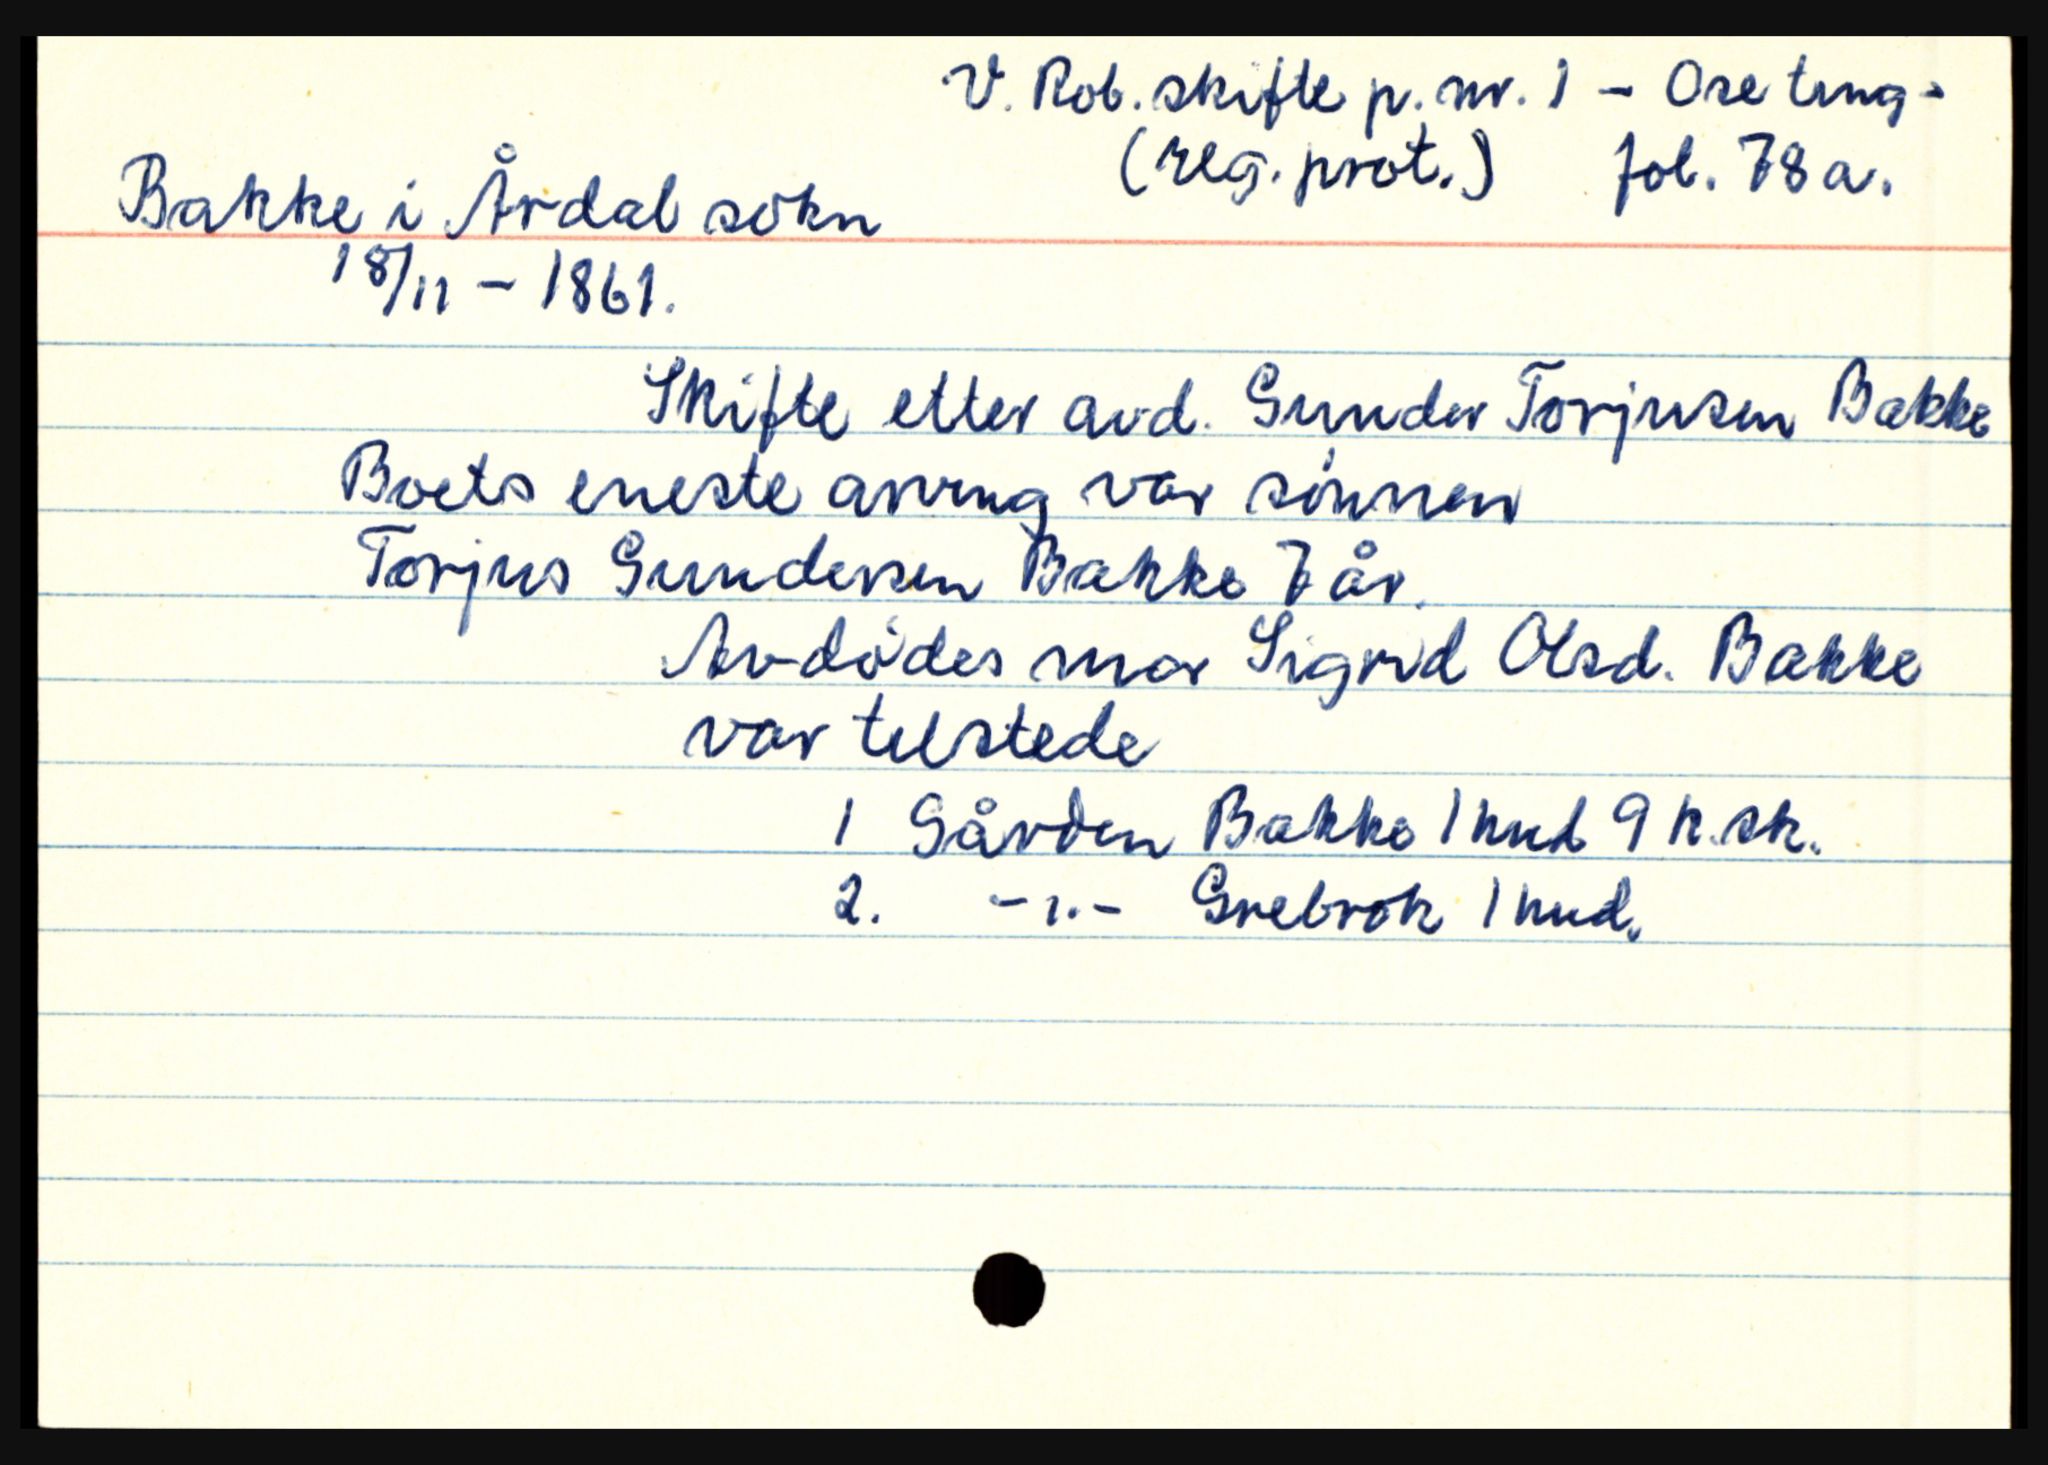 V. Rob. skifte p. nr. 1 - Ose ting -
(reg. prot.) fol. 78 a.
Bakke i Årdal sokn
18/11 - 1861.
Skifte etter avd. Gunder Torjusen Bakke
Boets eneste arving var sönnen
Torjus Gundersen Bakke 7 år.
Avdödes mor Sigrid Olsd. Bakke
var tilstede
1 Gården Bakke 1 hud 9 k.sk.
2. - " - Grebrok 1 hud.